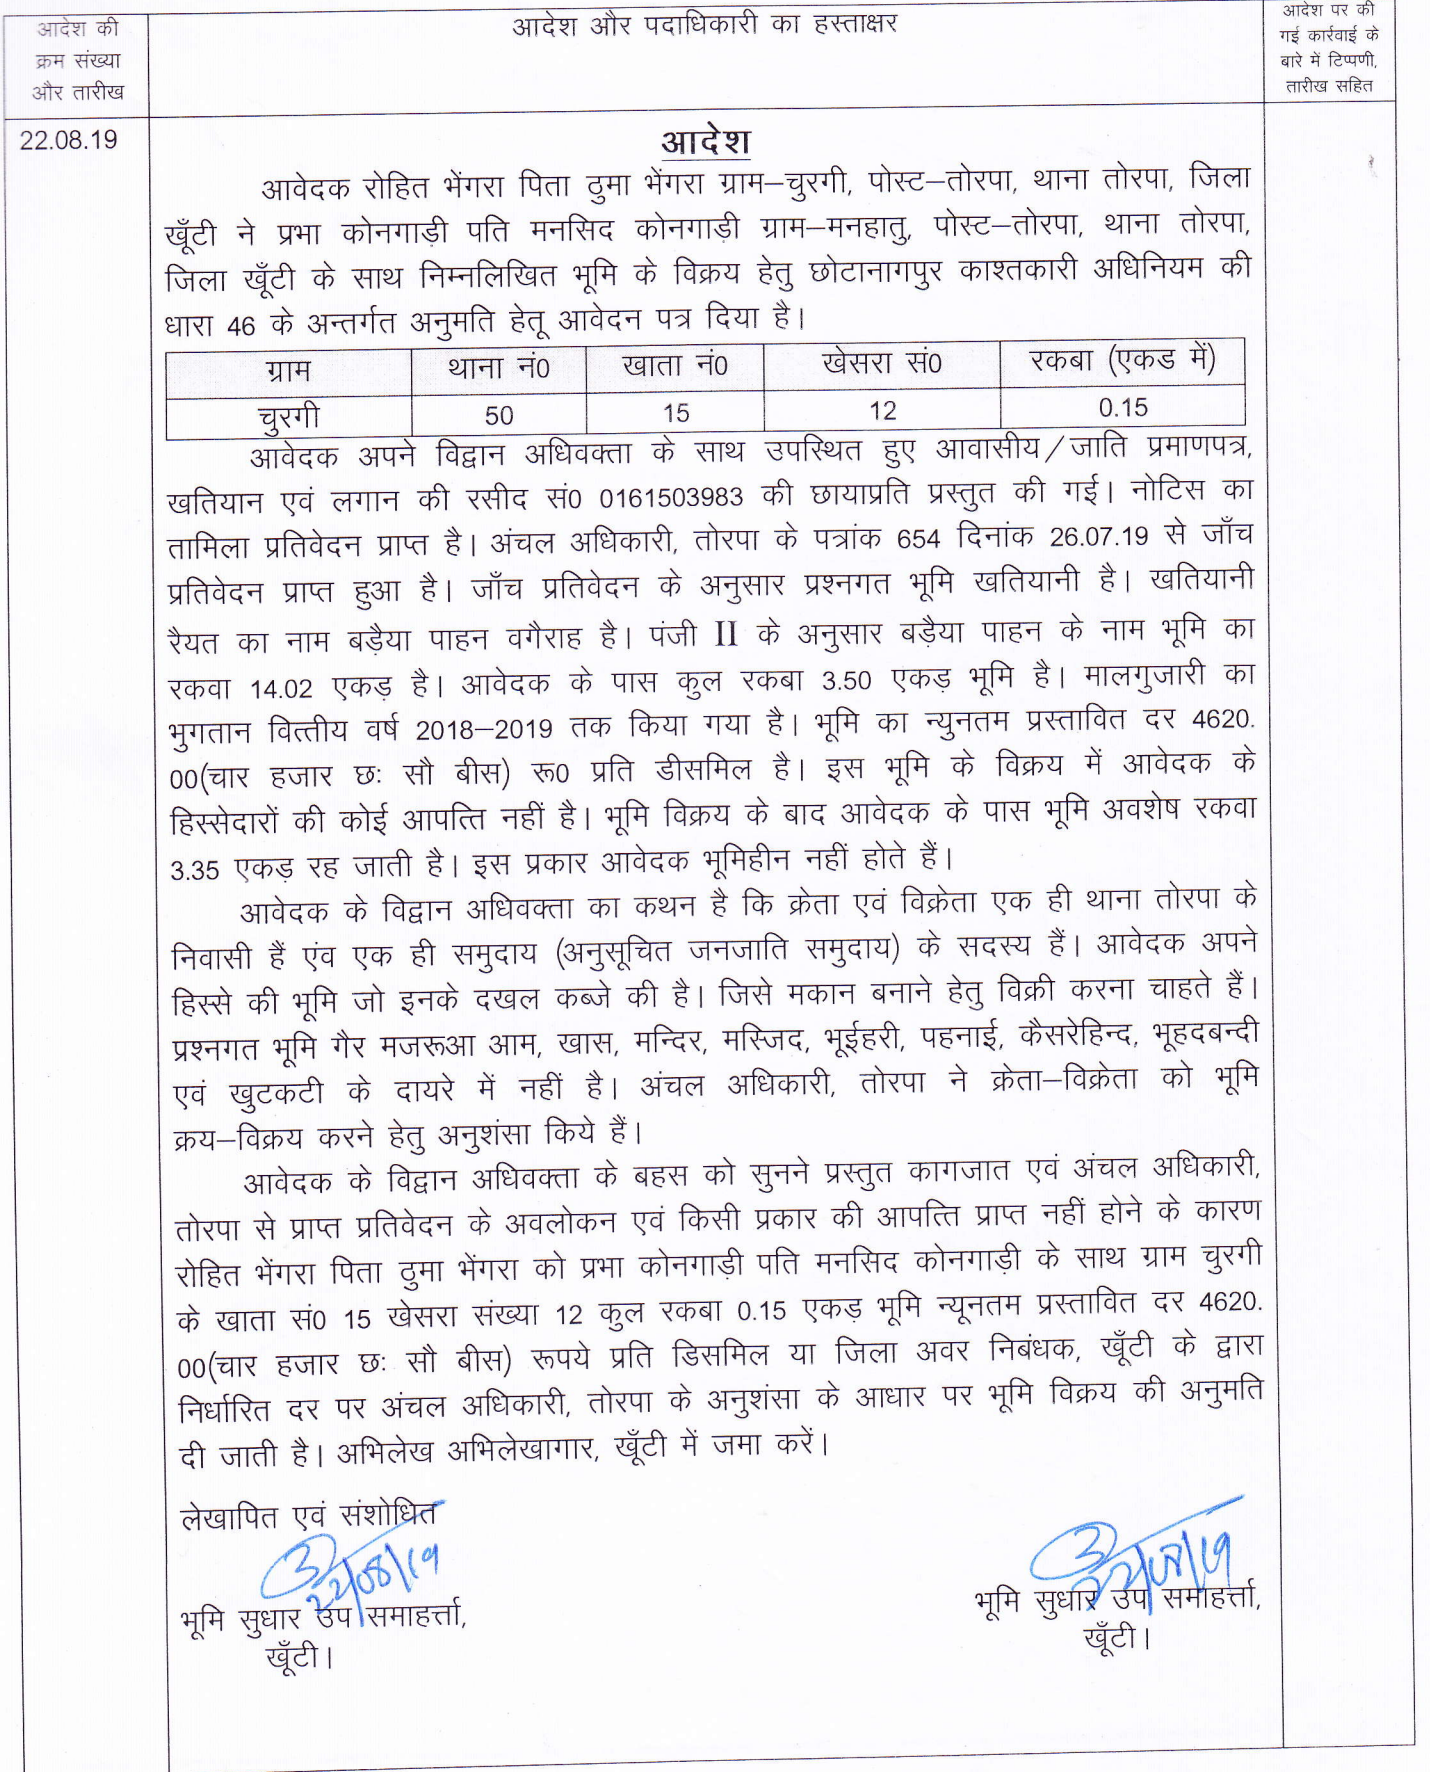 आदेश की
क्रम संख्या
और तारीख
आदेश और पदाधिकारी का हस्ताक्षर
आदेश पर की
गई कार्रवाई के
बारे में टिप्पणी,
तारीख सहित
22.08.19
आदेश
आवेदक रोहित भेंगरा पिता ठुमा भेंगरा ग्राम–चुरगी, पोस्ट–तोरपा, थाना तोरपा, जिला
खूँटी ने प्रभा कोनगाड़ी पति मनसिद कोनगाड़ी ग्राम–मनहातु, पोस्ट–तोरपा, थाना तोरपा,
जिला खूँटी के साथ निम्नलिखित भूमि के विक्रय हेतु छोटानागपुर काश्तकारी अधिनियम की
धारा 46 के अन्तर्गत अनुमति हेतू आवेदन पत्र दिया है।
ग्राम थाना नं0 खाता नं0 खेसरा सं0 रकबा (एकड में)
चुरगी 50 15 12 0.15
आवेदक अपने विद्वान अधिवक्ता के साथ उपस्थित हुए आवासीय/जाति प्रमाणपत्र,
खतियान एवं लगान की रसीद सं0 0161503983 की छायाप्रति प्रस्तुत की गई। नोटिस का
तामिला प्रतिवेदन प्राप्त है। अंचल अधिकारी, तोरपा के पत्रांक 654 दिनांक 26.07.19 से जाँच
प्रतिवेदन प्राप्त हुआ है। जाँच प्रतिवेदन के अनुसार प्रश्नगत भूमि खतियानी है। खतियानी
रैयत का नाम बड़ैया पाहन वगैराह है। पंजी II के अनुसार बड़ैया पाहन के नाम भूमि का
रकवा 14.02 एकड़ है। आवेदक के पास कुल रकबा 3.50 एकड़ भूमि है। मालगुजारी का
भुगतान वित्तीय वर्ष 2018–2019 तक किया गया है। भूमि का न्युनतम प्रस्तावित दर 4620.
00(चार हजार छः सौ बीस) रू0 प्रति डीसमिल है। इस भूमि के विक्रय में आवेदक के
हिस्सेदारों की कोई आपत्ति नहीं है। भूमि विक्रय के बाद आवेदक के पास भूमि अवशेष रकवा
3.35 एकड़ रह जाती है। इस प्रकार आवेदक भूमिहीन नहीं होते हैं।
आवेदक के विद्वान अधिवक्ता का कथन है कि क्रेता एवं विक्रेता एक ही थाना तोरपा के
निवासी हैं एंव एक ही समुदाय (अनुसूचित जनजाति समुदाय) के सदस्य हैं। आवेदक अपने
हिस्से की भूमि जो इनके दखल कब्जे की है। जिसे मकान बनाने हेतु विक्री करना चाहते हैं।
प्रश्नगत भूमि गैर मजरूआ आम, खास, मन्दिर, मस्जिद, भूईहरी, पहनाई, कैसरेहिन्द, भूहदबन्दी
एवं खुटकटी के दायरे में नहीं है। अंचल अधिकारी, तोरपा ने क्रेता–विक्रेता को भूमि
क्रय–विक्रय करने हेतु अनुशंसा किये हैं।
आवेदक के विद्वान अधिवक्ता के बहस को सुनने प्रस्तुत कागजात एवं अंचल अधिकारी,
तोरपा से प्राप्त प्रतिवेदन के अवलोकन एवं किसी प्रकार की आपत्ति प्राप्त नहीं होने के कारण
रोहित भेंगरा पिता ठुमा भेंगरा को प्रभा कोनगाड़ी पति मनसिद कोनगाड़ी के साथ ग्राम चुरगी
के खाता सं0 15 खेसरा संख्या 12 कुल रकबा 0.15 एकड़ भूमि न्यूनतम प्रस्तावित दर 4620.
00(चार हजार छः सौ बीस) रूपये प्रति डिसमिल या जिला अवर निबंधक, खूँटी के द्वारा
निर्धारित दर पर अंचल अधिकारी, तोरपा के अनुशंसा के आधार पर भूमि विक्रय की अनुमति
दी जाती है। अभिलेख अभिलेखागार, खूँटी में जमा करें।
लेखापित एवं संशोधित
22/08/19 22/08/19
भूमि सुधार उप समाहर्त्ता, भूमि सुधार उप समाहर्त्ता,
खूँटी। खूँटी।